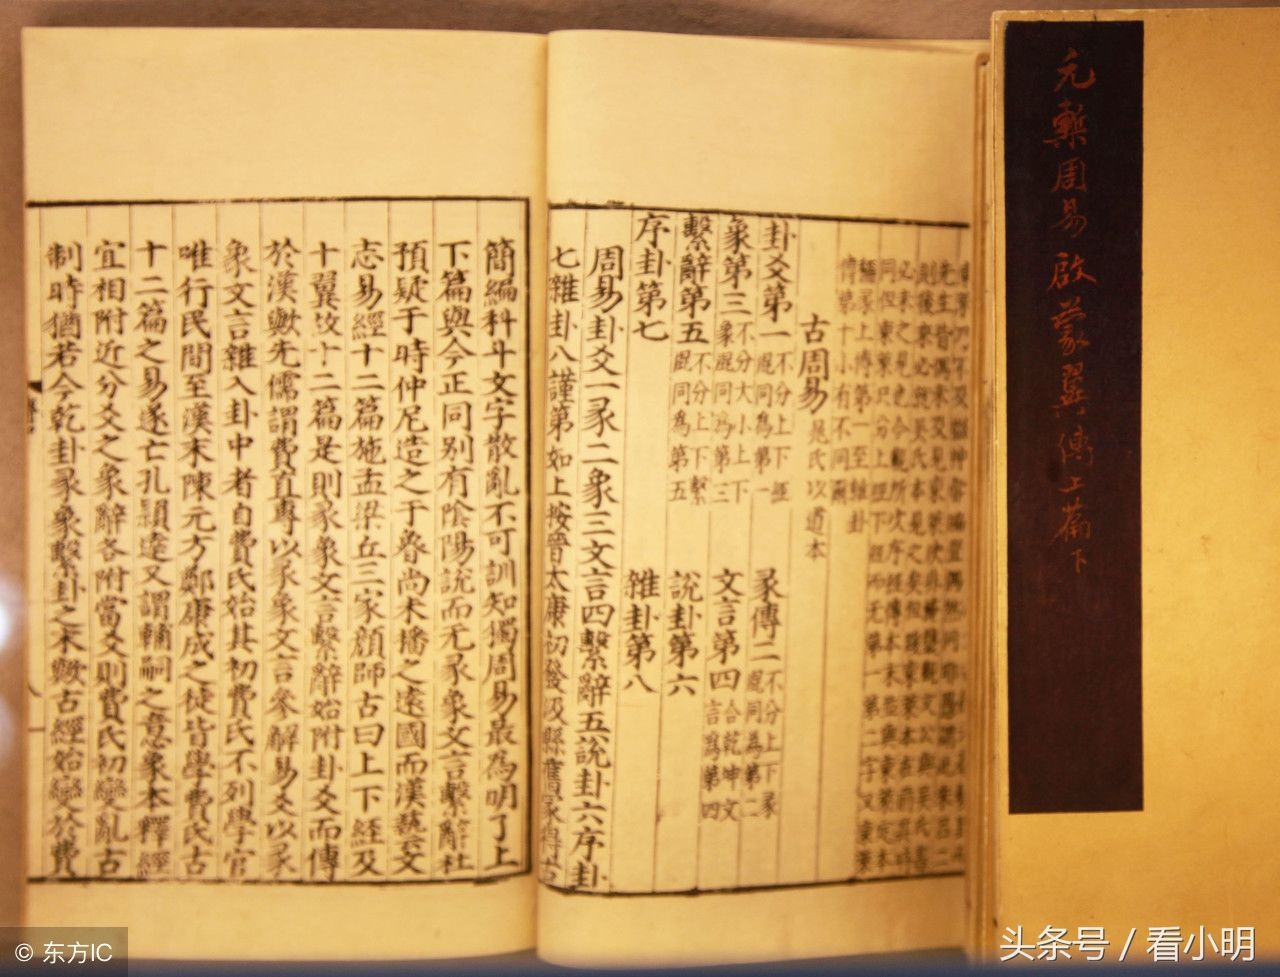 元槧周易啟蒙翼傳上篇下
傳第十小有不同爾
古周易晁氏以道本
卦爻第一不分上下經混同為第一
彖傳二不分上下彖混同為第二
象第三不分大小上下象混同為第三
文言第四合乾坤文言為第四
繫辭第五不分上下繫混同為第五
說卦第六
序卦第七
雜卦第八
周易卦爻一彖二象三文言四繫辭五說卦六序卦
七雜卦八謹第如上按晉太康初發汲縣舊冢得古
簡編科斗文字散亂不可訓知獨周易最為明了上
下篇與今正同别有陰陽說而无彖象文言繫辭杜
預疑于時仲尼造之于魯尚未播之遠國而漢藝文
志易經十二篇施孟梁丘三家顔師古曰上下經及
十翼故十二篇是則彖象文言繫辭始附卦爻而傳
於漢歟先儒謂費直專以彖象文言參解易爻以彖
象文言雜入卦中者自費氏始其初費氏不列學官
唯行民間至漢末陳元方鄭康成之徒皆學費氏古
十二篇之易遂亡孔穎達又謂輔嗣之意象本釋經
宜相附近分爻之象辭各附當爻則費氏初變亂古
制時猶若今乾卦彖象繫卦之末歟古經始變於費
© 东方IC
头条号 / 看小明